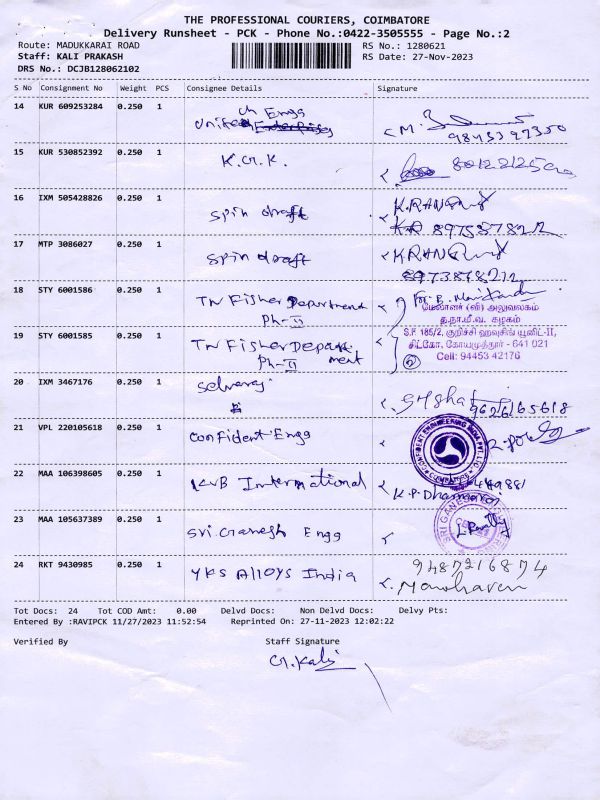 THE PROFESSIONAL COURIERS, COIMBATORE
Delivery Runsheet - PCK - Phone No.:0422-3505555 - Page No.:2
Route: MADUKKARAI ROAD RS No.: 1280621
Staff: KALI PRAKASH RS Date: 27-Nov-2023
DRS No.: DCJB128062102
S No Consignment No Weight PCS Consignee Details Signature
14 KUR 609253284 0.250 1 United ch Engg
15 KUR 530852392 0.250 1 K.G.K.
16 IXM 505428826 0.250 1 spin draft
17 MTP 3086027 0.250 1 spin draft
18 STY 6001586 0.250 1 TN Fisher Department
Ph-II
மேலாளர் (வி) அலுவலகம்
த.நா.மீ.வ. கழகம்
19 STY 6001585 0.250 1 TN Fisher Department
Ph-II
S.F. 185/2, குறிச்சி ஹவுசிங் யூனிட்-II,
சிட்கோ, கோயமுத்தூர் - 641 021
Cell: 94453 42176
20 IXM 3467176 0.250 1 selvaraj
9626165618
21 VPL 220105618 0.250 1 Confident Engg
22 MAA 106398605 0.250 1 KVB International
23 MAA 105637389 0.250 1 Sri Ganesh Engg
24 RKT 9430985 0.250 1 YKS Alloys India
9487216874
Manoharan
Tot Docs: 24 Tot COD Amt: 0.00 Delvd Docs: Non Delvd Docs: Delvy Pts:
Entered By :RAVIPCK 11/27/2023 11:52:54 Reprinted On: 27-11-2023 12:02:22
Verified By Staff Signature
G.Kali